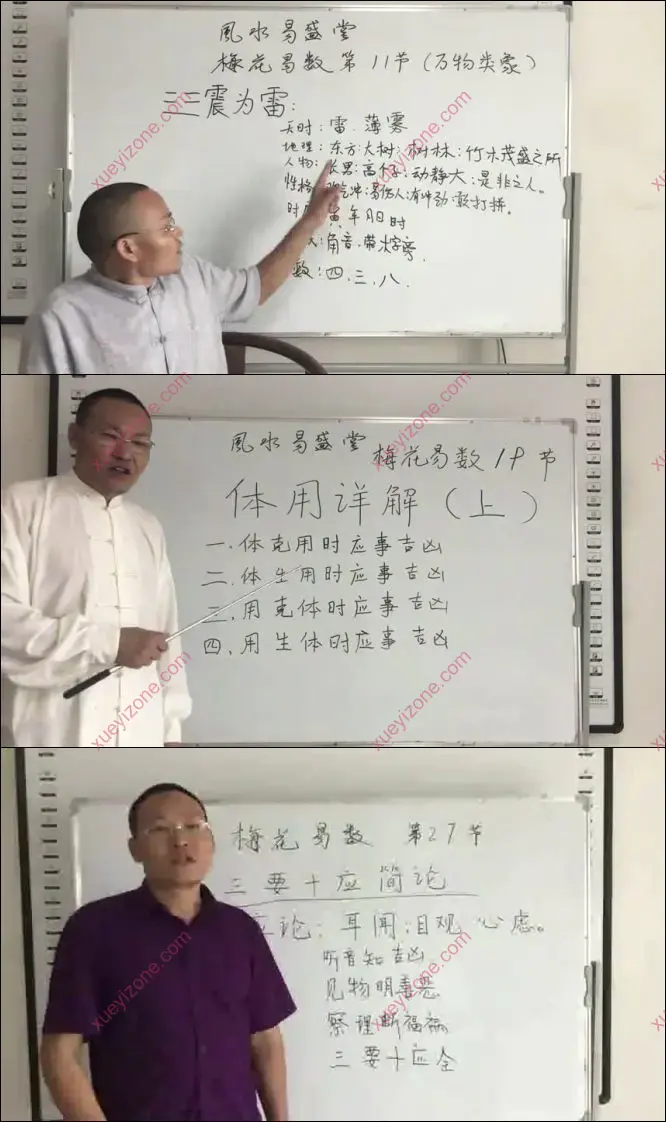 風水易盛堂
梅花易数第11节(万物类象)
三三震为雷:
天时:雷.薄雾
地理:东方:大树:树林:竹木茂盛之所
人物:长男:高个子:动静大:是非之人。
性格 冲:易伤人:有冲劲:敢打拼。
时 寅年月日时
角音.带木字旁
数:四.三.八.
風水易盛堂 梅花易数19节
体用详解(上)
一.体克用时应事吉凶
二.体生用时应事吉凶
三.用克体时应事吉凶
四.用生体时应事吉凶
梅花易数 第27节
三要十应简论
立论:耳闻:目观 心虑。
听音知吉凶
见物明喜恶
察理断福祸
三要十应全
xueyizone.com